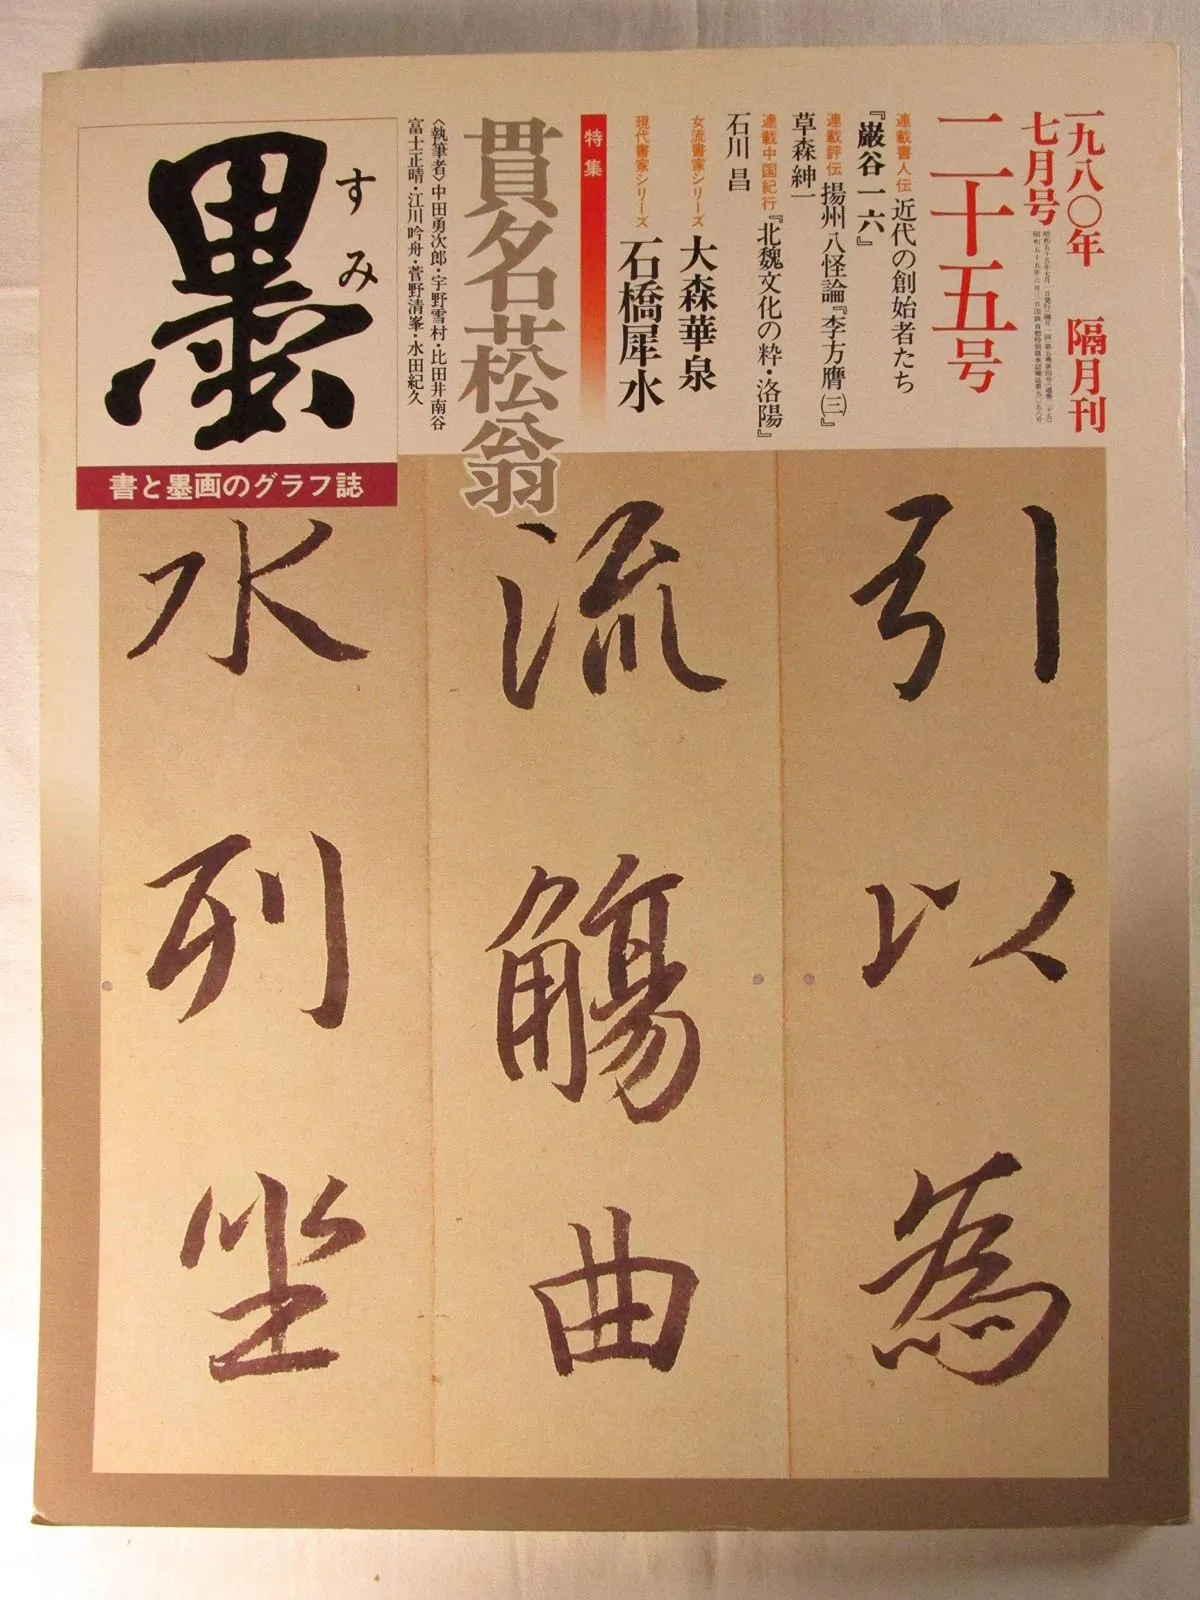 一九八〇年 隔月刊
七月号
二十五号
連載書人伝 近代の創始者たち
『巌谷一六』
連載評伝 揚州八怪論『李方膺(三)』
草森紳一
連載中国紀行『北魏文化の粋・洛陽』
石川 昌
女流書家シリーズ 大森華泉
現代書家シリーズ 石橋犀水
特集
貫名菘翁
〈執筆者〉中田勇次郎・宇野雪村・比田井南谷
富士正晴・江川吟舟・菅野清峯・水田紀久
すみ
墨
書と墨画のグラフ誌
引以為
流觴曲
水列坐